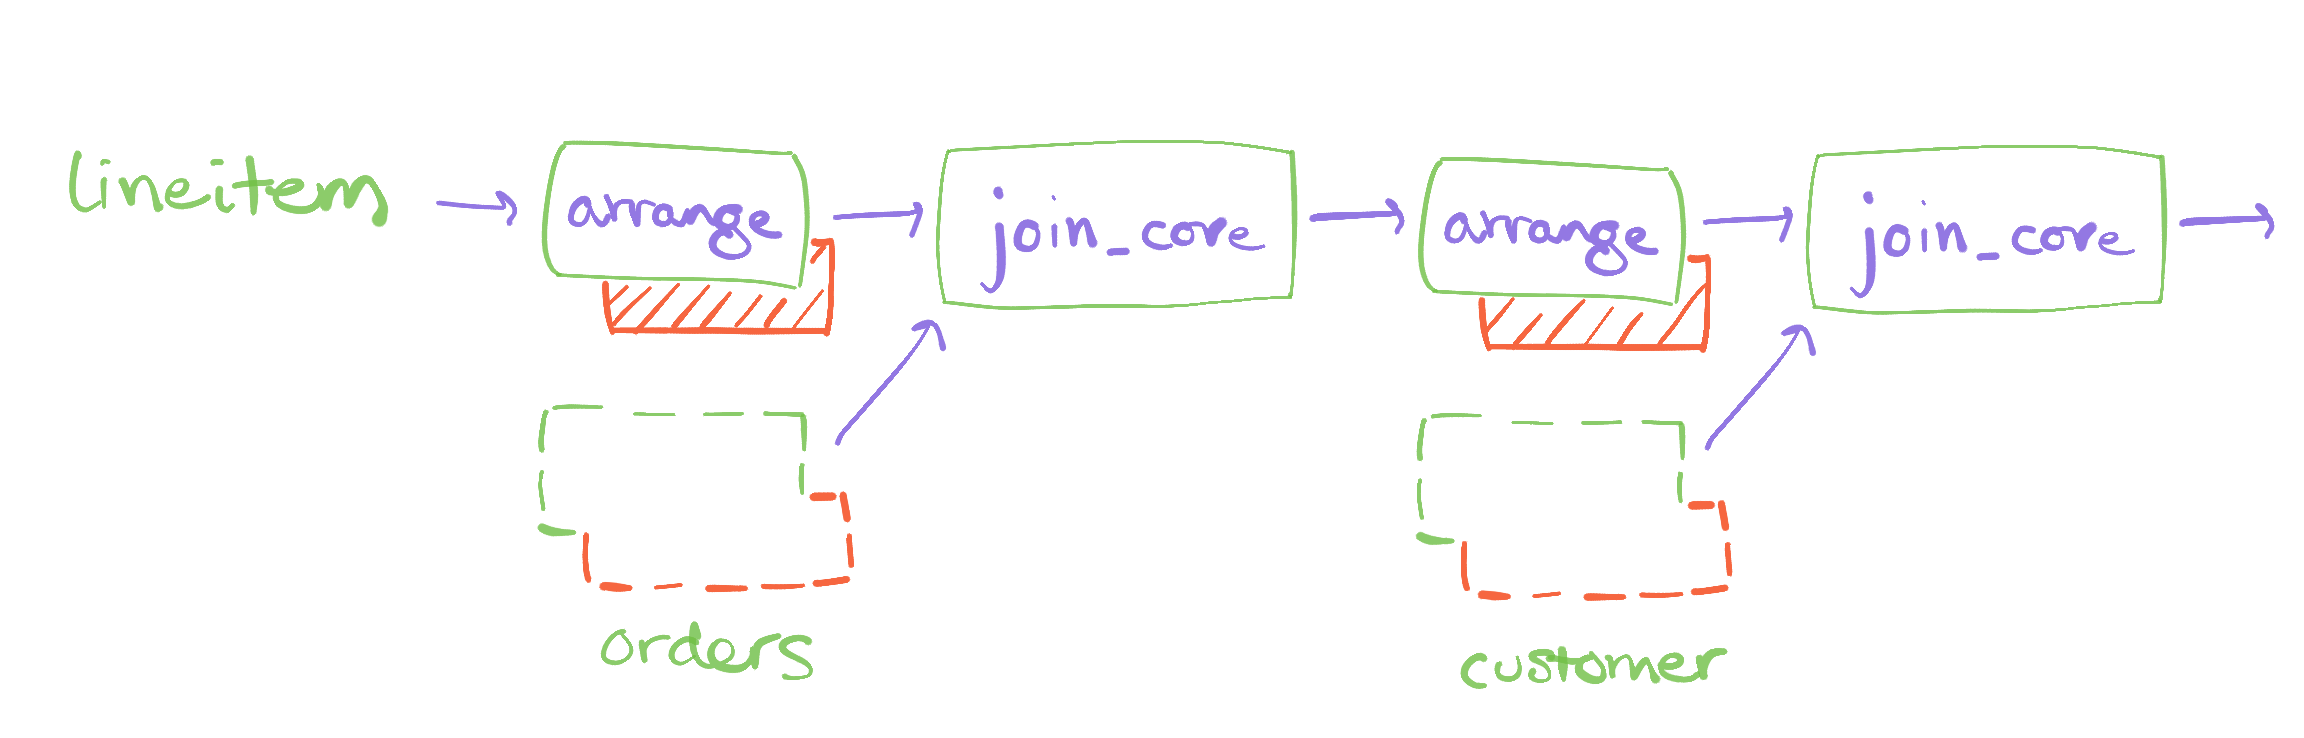 lineitem
arrange
join_core
arrange
join_core
orders
customer